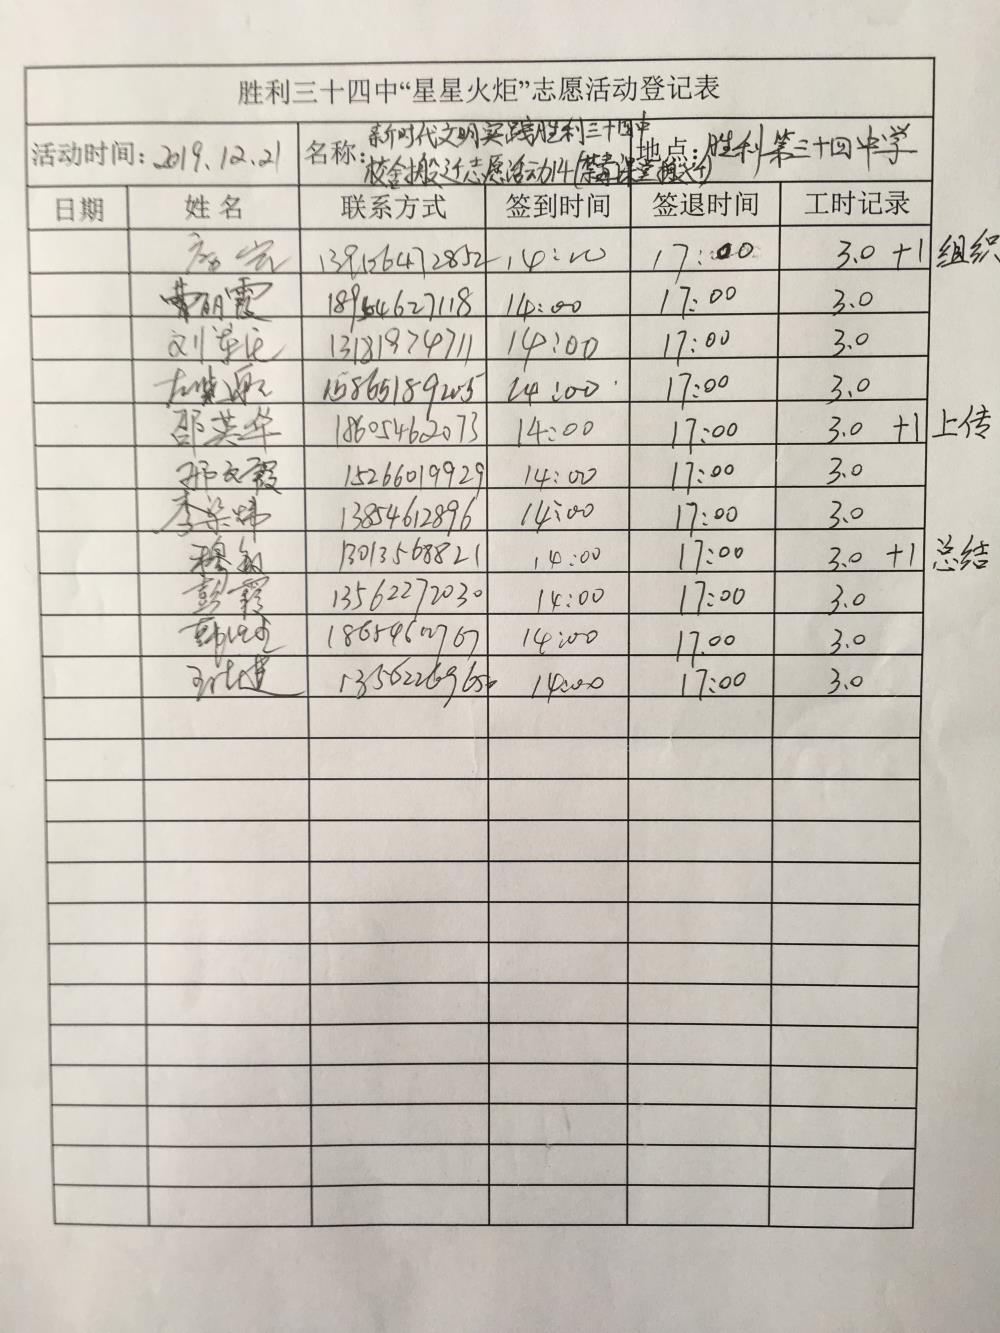 胜利三十四中“星星火炬”志愿活动登记表
活动时间：2019.12.21 名称：新时代文明实践胜利三十四中 地点：胜利第三十四中学
校舍搬迁志愿活动14
日期 姓名 联系方式 签到时间 签退时间 工时记录
14:00 17:00 3.0 +1 组织
曹明霞 18954627118 14:00 17:00 3.0
13181974711 14:00 17:00 3.0
15865189205 14:00 17:00 3.0
邵英华 18605462073 14:00 17:00 3.0 +1 上传
邢文霞 15266019929 14:00 17:00 3.0
13854612896 14:00 17:00 3.0
穆敏 13013568821 14:00 17:00 3.0 +1 总结
彭霞 13562272030 14:00 17:00 3.0
14:00 17.00 3.0
14:00 17:00 3.0